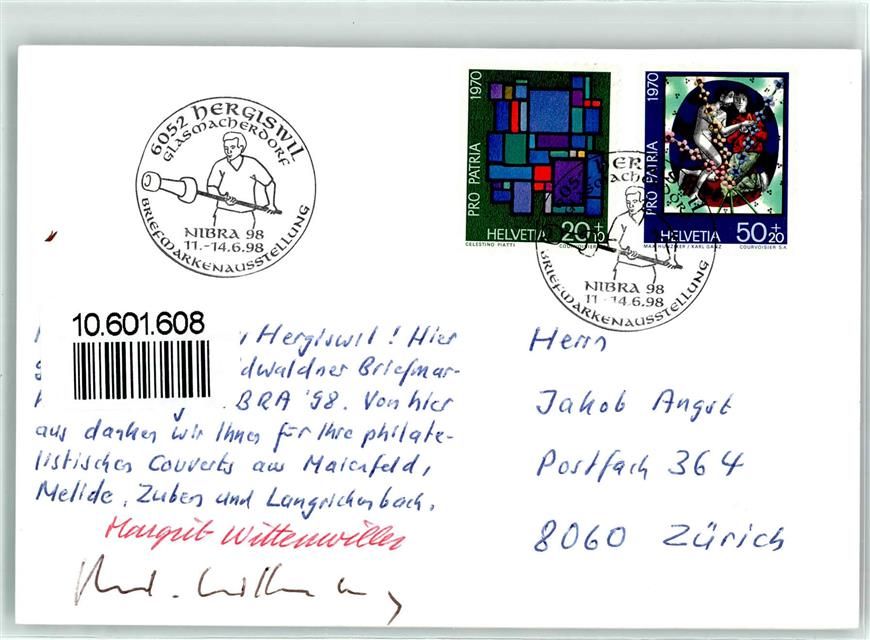 6052 HERGISWIL
GLASMACHERDORF
NIBRA 98
11.-14.6.98
BRIEFMARKENAUSSTELLUNG
PRO PATRIA 1970
HELVETIA 20+10
CELESTINO PIATTI COURVOISIER
PRO PATRIA 1970
HELVETIA 50+20
MAX HUNZIKER / KARL GANZ COURVOISIER S.A.
HERGIS
NIBRA 98
11.-14.6.98
BRIEFMARKENAUSSTELLUNG
10.601.608
Hergiswil! Hier
dwaldner Briefmar-
BRA '98. Von hier
aus danken wir Ihnen für Ihre philate-
listischen Couverts aus Maienfeld,
Melide, Zuben und Langrickenbach.
Margrit Wittenwiller
Herrn
Jakob Angst
Postfach 364
8060 Zürich